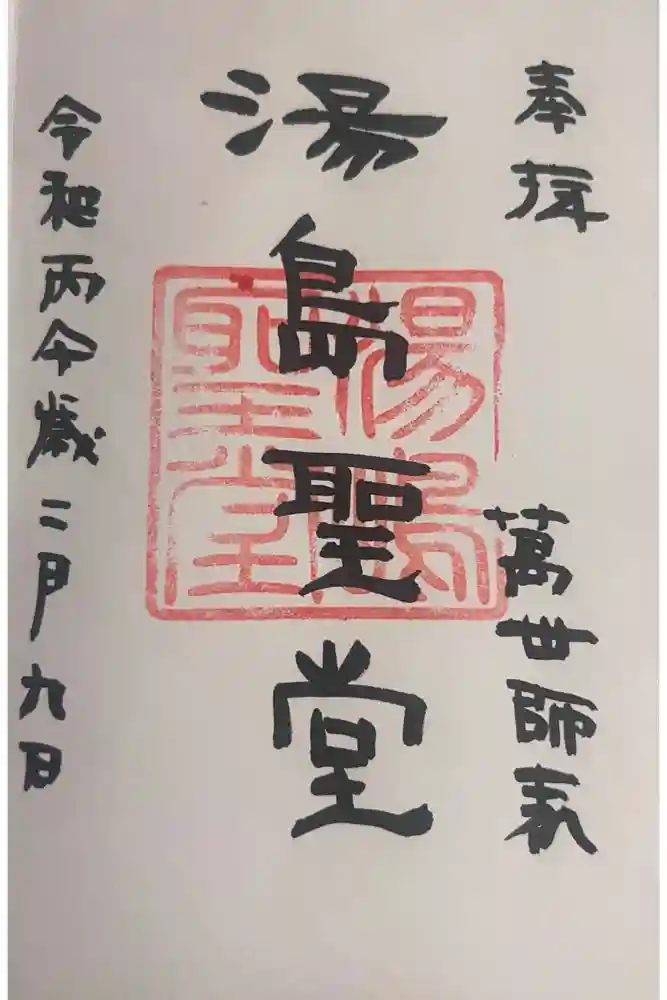 奉拝
萬世師表
湯島聖堂
湯島聖堂
令和丙午歳二月九日